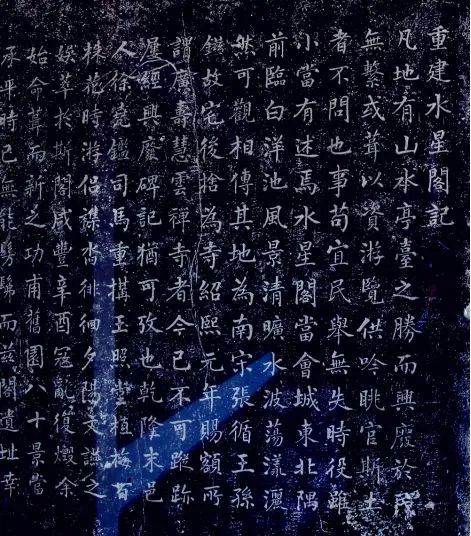 重建水星閣記
凡地有山水亭臺之勝而興廢於民
無繫或葺以資游覽供吟眺官斯土
者不問也事苟宜民舉無失時役雖
小當有述焉水星閣當會城東北隅
前臨白洋池風景清曠水波蕩漾灑
然可觀相傳其地為南宋張循王孫
鎡故宅後捨為寺紹熙元年賜額所
謂廣壽慧雲禪寺者今已不可蹤跡
屢經興廢碑記猶可攷也乾隆末邑
人徐堯鑑司馬重構玉照堂植梅百
株花時游侶譟沓徘徊夕陽文讌之
娛萃於斯閣咸豐辛酉冦亂復燬余
始命葺而新之功甫舊園八十景當
承平時已無能髣髴而茲閣遺址幸